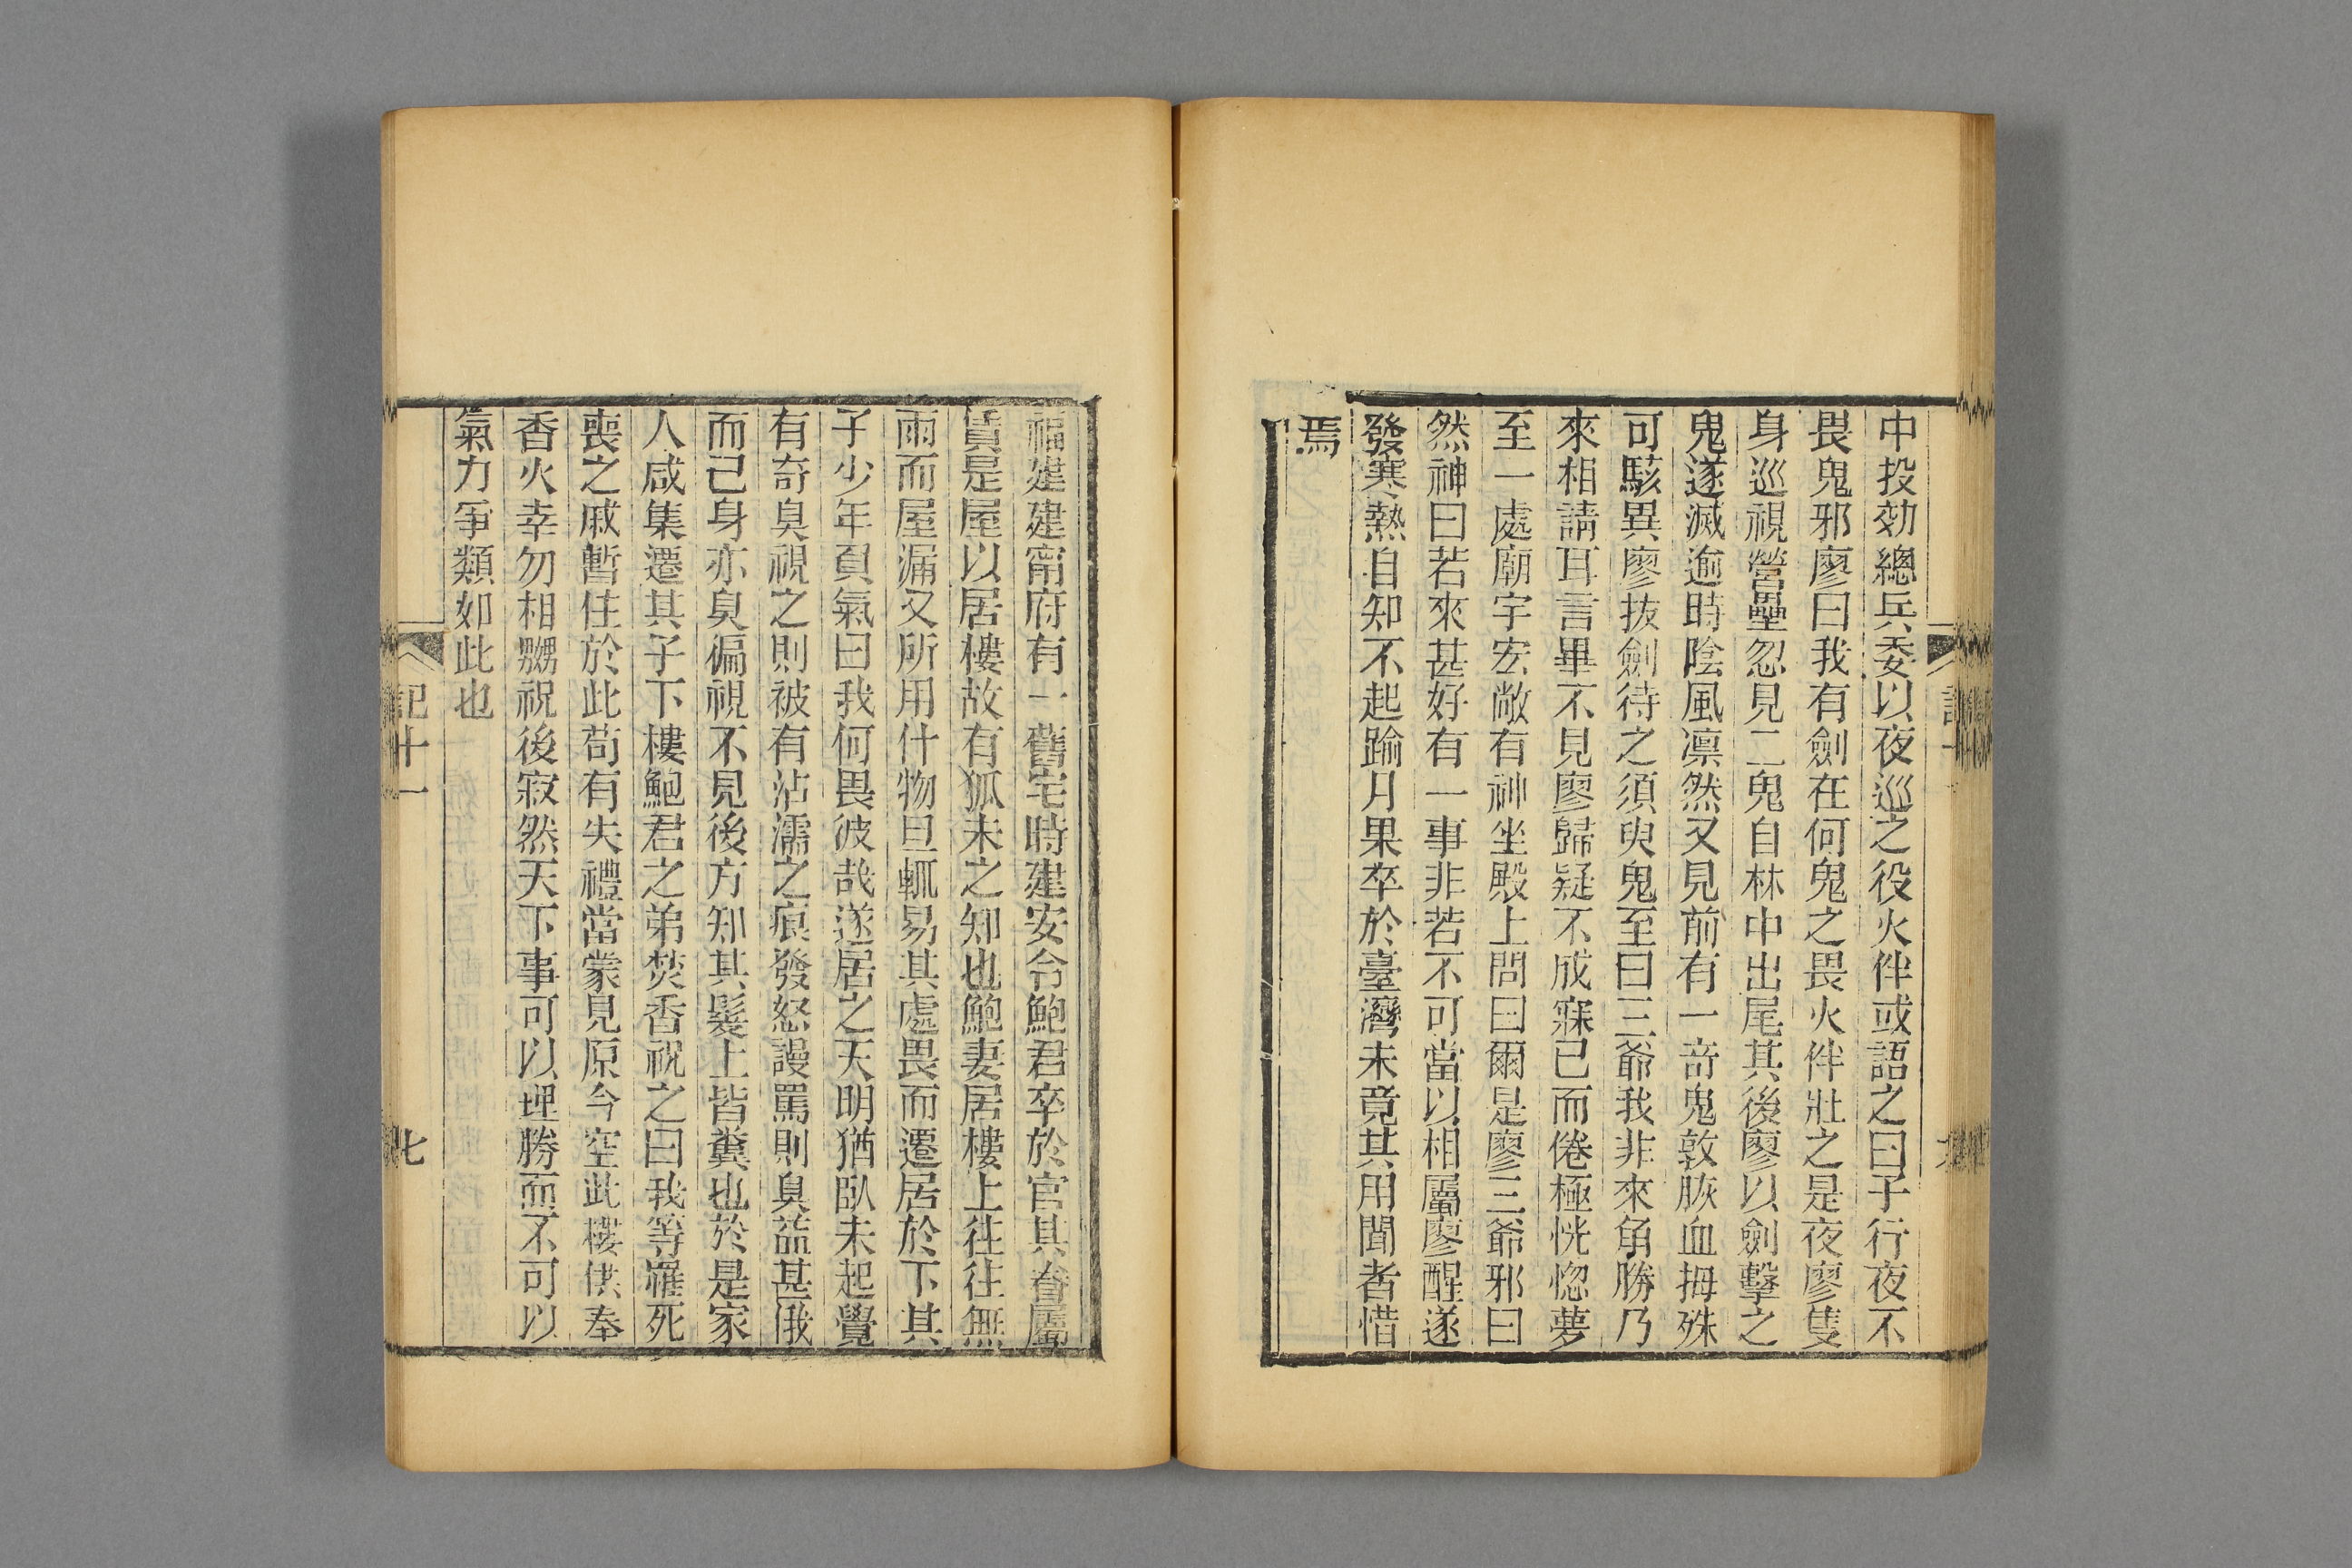 中投効總兵委以夜巡之役火伴或語之曰子行夜不
畏鬼邪廖曰我有劍在何鬼之畏火伴壯之是夜廖隻
身巡視營壘忽見二鬼自林中出尾其後廖以劍擊之
鬼遂滅逾時陰風凛然又見前有一竒鬼敦脄血拇殊
可駭異廖拔劍待之須臾鬼至曰三爺我非來角勝乃
來相請耳言畢不見廖歸疑不成寐已而倦極恍惚夢
至一處廟宇宏敞有神坐殿上問曰爾是廖三爺邪曰
然神曰若來甚好有一事非若不可當以相屬廖醒遂
發寒熱自知不起踰月果卒於臺灣未竟其用聞者惜
焉
福建建甯府有一舊宅時建安令鮑君卒於官其眷屬
賃是屋以居樓故有狐未之知也鮑妻居樓上往往無
雨而屋漏又所用什物旦輒易其處畏而遷居於下其
子少年負氣曰我何畏彼哉遂居之天明猶臥未起覺
有奇臭視之則被有沾濡之痕發怒謾罵則臭益甚俄
而己身亦臭徧視不見後方知其髮上皆糞也於是家
人咸集遷其子下樓鮑君之弟焚香祝之曰我等罹死
喪之戚暫住於此苟有失禮當蒙見原今空此樓供奉
香火幸勿相嬲祝後寂然天下事可以理勝而不可以
氣力爭類如此也
記十一
七